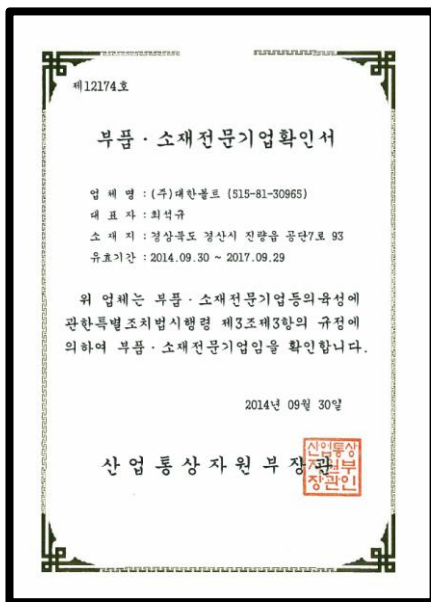 제12174호
부품 · 소재전문기업확인서
업 체 명 : (주)대한볼트 (515-81-30965)
대 표 자 : 최석규
소 재 지 : 경상북도 경산시 진량읍 공단7로 93
유효기간 : 2014.09.30 ~ 2017.09.29
위 업체는 부품 · 소재전문기업등의육성에
관한특별조치법시행령 제3조제3항의 규정에
의하여 부품 · 소재전문기업임을 확인합니다.
2014년 09월 30일
산업통상자원부장관
산업통상
자원부
장관인